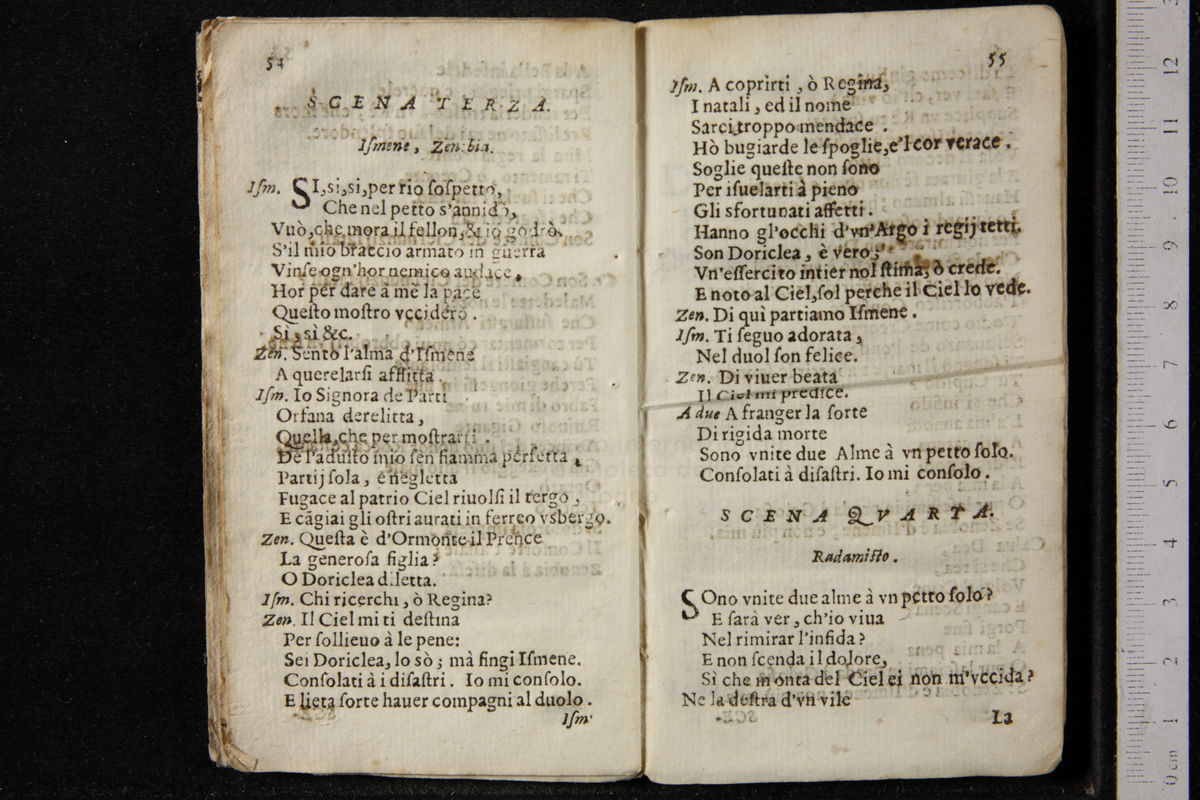 54
SCENA TERZA.
Iſmene, Zenobia.
Iſm. SI, si, si, per rio ſoſpetto,
Che nel petto s'annidò,
Vuò, che mora il fellon, & io godrò.
S'il mio braccio armato in guerra
Vinſe ogn'hor nemico audace,
Hor per dare à me la pace
Queſto moſtro vcciderò.
Sì, sì &c.
Zen. Sento l'alma d'Iſmene
A querelarſi afflitta
Iſm. Io Signora de Parti
Orfana derelitta,
Quella, che per moſtrarti.
De l'aduſto mio ſen fiamma perfetta,
Partij ſola, e negletta
Fugace al patrio Ciel riuolſi il tergo,
E cãgiai gli oſtri aurati in ferreo vsbergo.
Zen. Queſta è d'Ormonte il Prence
La generoſa figlia?
O Doriclea diletta.
Iſm. Chi ricerchi, ò Regina?
Zen. Il Ciel mi ti deſtina
Per ſollieuo à le pene:
Sei Doriclea, lo sò; mà fingi Iſmene.
Conſolati à i diſaſtri. Io mi conſolo.
E lieta ſorte hauer compagni al duolo.
Iſm.
55
Iſm. A coprirti, ò Regina,
I natali, ed il nome
Sarei troppo mendace.
Hò bugiarde le ſpoglie, e'l cor verace.
Soglie queſte non ſono
Per iſuelarti à pieno
Gli sfortunati affetti.
Hanno gl'occhi d'vn'Argo i regij tetti.
Son Doriclea, è vero;
Vn'eſſercito intier nol ſtima, ò crede.
E noto al Ciel, ſol perche il Ciel lo vede.
Zen. Di quì partiamo Iſmene.
Iſm. Ti ſeguo adorata,
Nel duol ſon felice.
Zen. Di viuer beata
Il Ciel mi predice.
A due A franger la ſorte
Di rigida morte
Sono vnite due Alme à vn petto ſolo.
Conſolati à diſaſtri. Io mi conſolo.
SCENA QVARTA.
Radamiſto.
SOno vnite due alme à vn petto ſolo?
E ſarà ver, ch'io viua
Nel rimirar l'infida?
E non ſcenda il dolore,
Sì che m'onta del Ciel ei non m'vccida?
Ne la deſtra d'vn vile
La